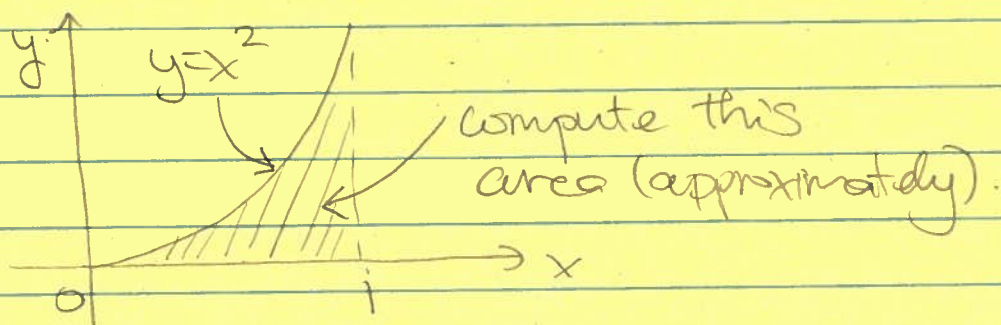 y
y=x²
compute this
area (approximately).
x
0
1